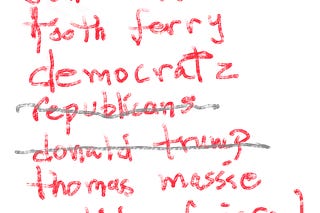 tooth ferry
democratz
republicans
donald trump
thomas massie